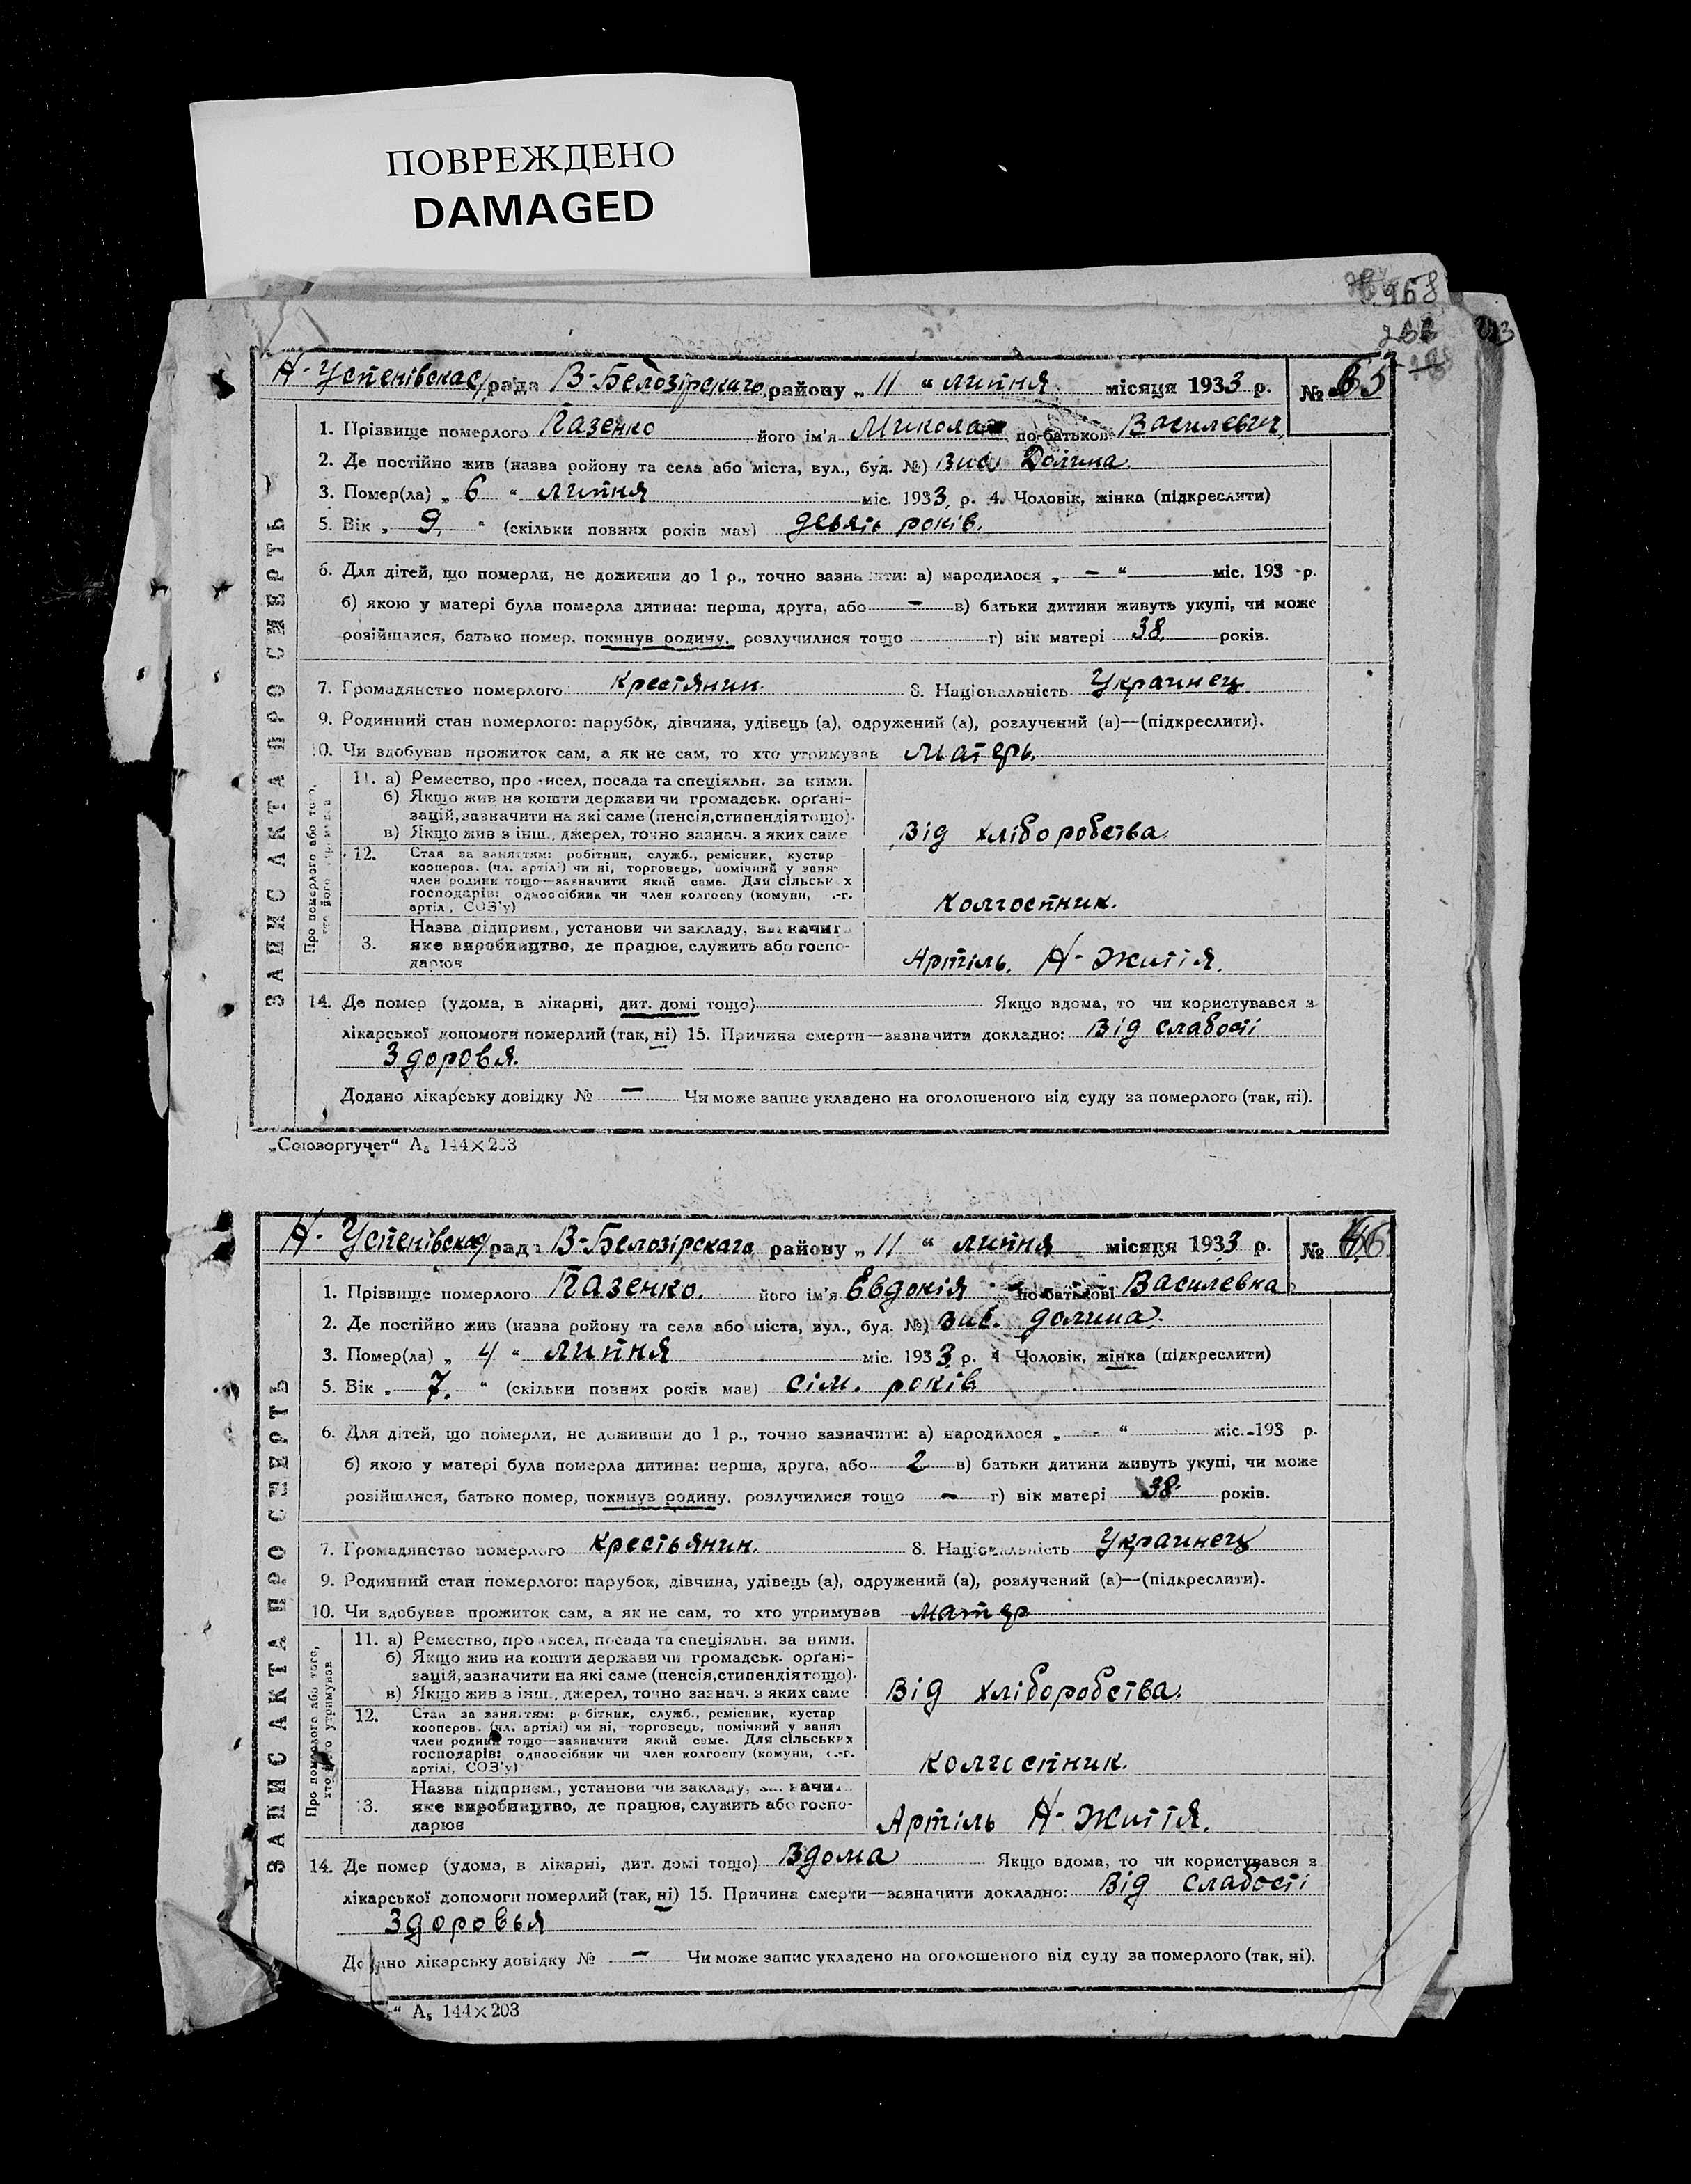 ПОВРЕЖДЕНО
DAMAGED
968
Н-Успенівская рада В-Белозірскаго району „ 11 “ липня місяця 1933 р. № 65
ЗАПИС АКТА ПРО СМЕРТЬ
1. Прізвище померлого Пазенко його ім'я Микола по-батькові Василевич
2. Де постійно жив (назва ройону та села або міста, вул., буд. №) вис. Долина.
3. Помер(ла) „ 6 “ липня міс. 1933 р. 4. Чоловік, жінка (підкреслити)
5. Вік „ 9. “ (скільки повних років мав) девять років.
6. Для дітей, що померли, не доживши до 1 р., точно зазначити: а) народилося „ — “ міс. 193 - р.
б) якою у матері була померла дитина: перша, друга, або — в) батьки дитини живуть укупі, чи може
розійшлися, батько помер, покинув родину, розлучилися тощо г) вік матері 38. років.
7. Громадянство померлого крестянин. 8. Національність Украинец
9. Родинний стан померлого: парубок, дівчина, удівець (а), одружений (а), розлучений (а)—(підкреслити).
10. Чи здобував прожиток сам, а як не сам, то хто утримував матерь.
Про померлого або того, хто його утримував
11. а) Ремество, промисел, посада та спеціяльн. за ними.
б) Якщо жив на кошти держави чи громадськ. орґані-
зацій, зазначити на які саме (пенсія, стипендія тощо).
в) Якщо жив з інш., джерел, точно зазнач. з яких саме
Від хліборобства.
12. Стан за заняттям: робітник, служб., ремісник, кустар
кооперов. (чл. артілі) чи ні, торговець, помічний у занят
член родини тощо—зазначити який саме. Для сільських
господарів: одноосібник чи член колгоспу (комуни, с.-г.
артілі, СОЗ'у)
Колгоспник.
3. Назва підприєм., установи чи закладу, зазначит
яке виробництво, де працює, служить або госпо-
дарює
Артіль. Н-Життя.
14. Де помер (удома, в лікарні, дит. домі тощо) Якщо вдома, то чи користувався з
лікарської допомоги померлий (так, ні) 15. Причина смерти—зазначити докладно: Від слабості
Здоровя.
Додано лікарську довідку № — Чи може запис укладено на оголошеного від суду за померлого (так, ні).
„Союзоргучет“ А5 144×203
Н-Успенівская рада В-Белозірскаго району „ 11 “ липня місяця 1933 р. № 66
ЗАПИС АКТА ПРО СМЕРТЬ
1. Прізвище померлого Пазенко. його ім'я Евдокія по-батькові Василевна
2. Де постійно жив (назва ройону та села або міста, вул., буд. №) вис. долина.
3. Помер(ла) „ 4 “ липня міс. 1933 р. 4 Чоловік, жінка (підкреслити)
5. Вік „ 7. “ (скільки повних років мав) сім. років
6. Для дітей, що померли, не доживши до 1 р., точно зазначити: а) народилося „ - “ міс. 193 р.
б) якою у матері була померла дитина: перша, друга, або 2 в) батьки дитини живуть укупі, чи може
розійшлися, батько помер, покинув родину, розлучилися тощо — г) вік матері 38. років.
7. Громадянство померлого крестьянин. 8. Національність Украинец
9. Родинний стан померлого: парубок, дівчина, удівець (а), одружений (а), розлучений (а)—(підкреслити).
10. Чи здобував прожиток сам, а як не сам, то хто утримував матер
Про померлого або того, хто його утримував
11. а) Ремество, промисел, посада та спеціяльн. за ними.
б) Якщо жив на кошти держави чи громадськ. орґані-
зацій, зазначити на які саме (пенсія, стипендія тощо).
в) Якщо жив з інш., джерел, точно зазнач. з яких саме
Від хліборобства.
12. Стан за заняттям: робітник, служб., ремісник, кустар
кооперов. (чл. артілі) чи ні, торговець, помічний у занят
член родини тощо—зазначити який саме. Для сільських
господарів: одноосібник чи член колгоспу (комуни, с.-г.
артілі, СОЗ'у)
колгоспник.
3. Назва підприєм., установи чи закладу, зазначит
яке виробництво, де працює, служить або госпо-
дарює
Артіль Н-Життя.
14. Де помер (удома, в лікарні, дит. домі тощо) Вдома Якщо вдома, то чи користувався з
лікарської допомоги померлий (так, ні) 15. Причина смерти—зазначити докладно: Від слабості
Здоровья
Додано лікарську довідку № — Чи може запис укладено на оголошеного від суду за померлого (так, ні).
“ А5 144×203